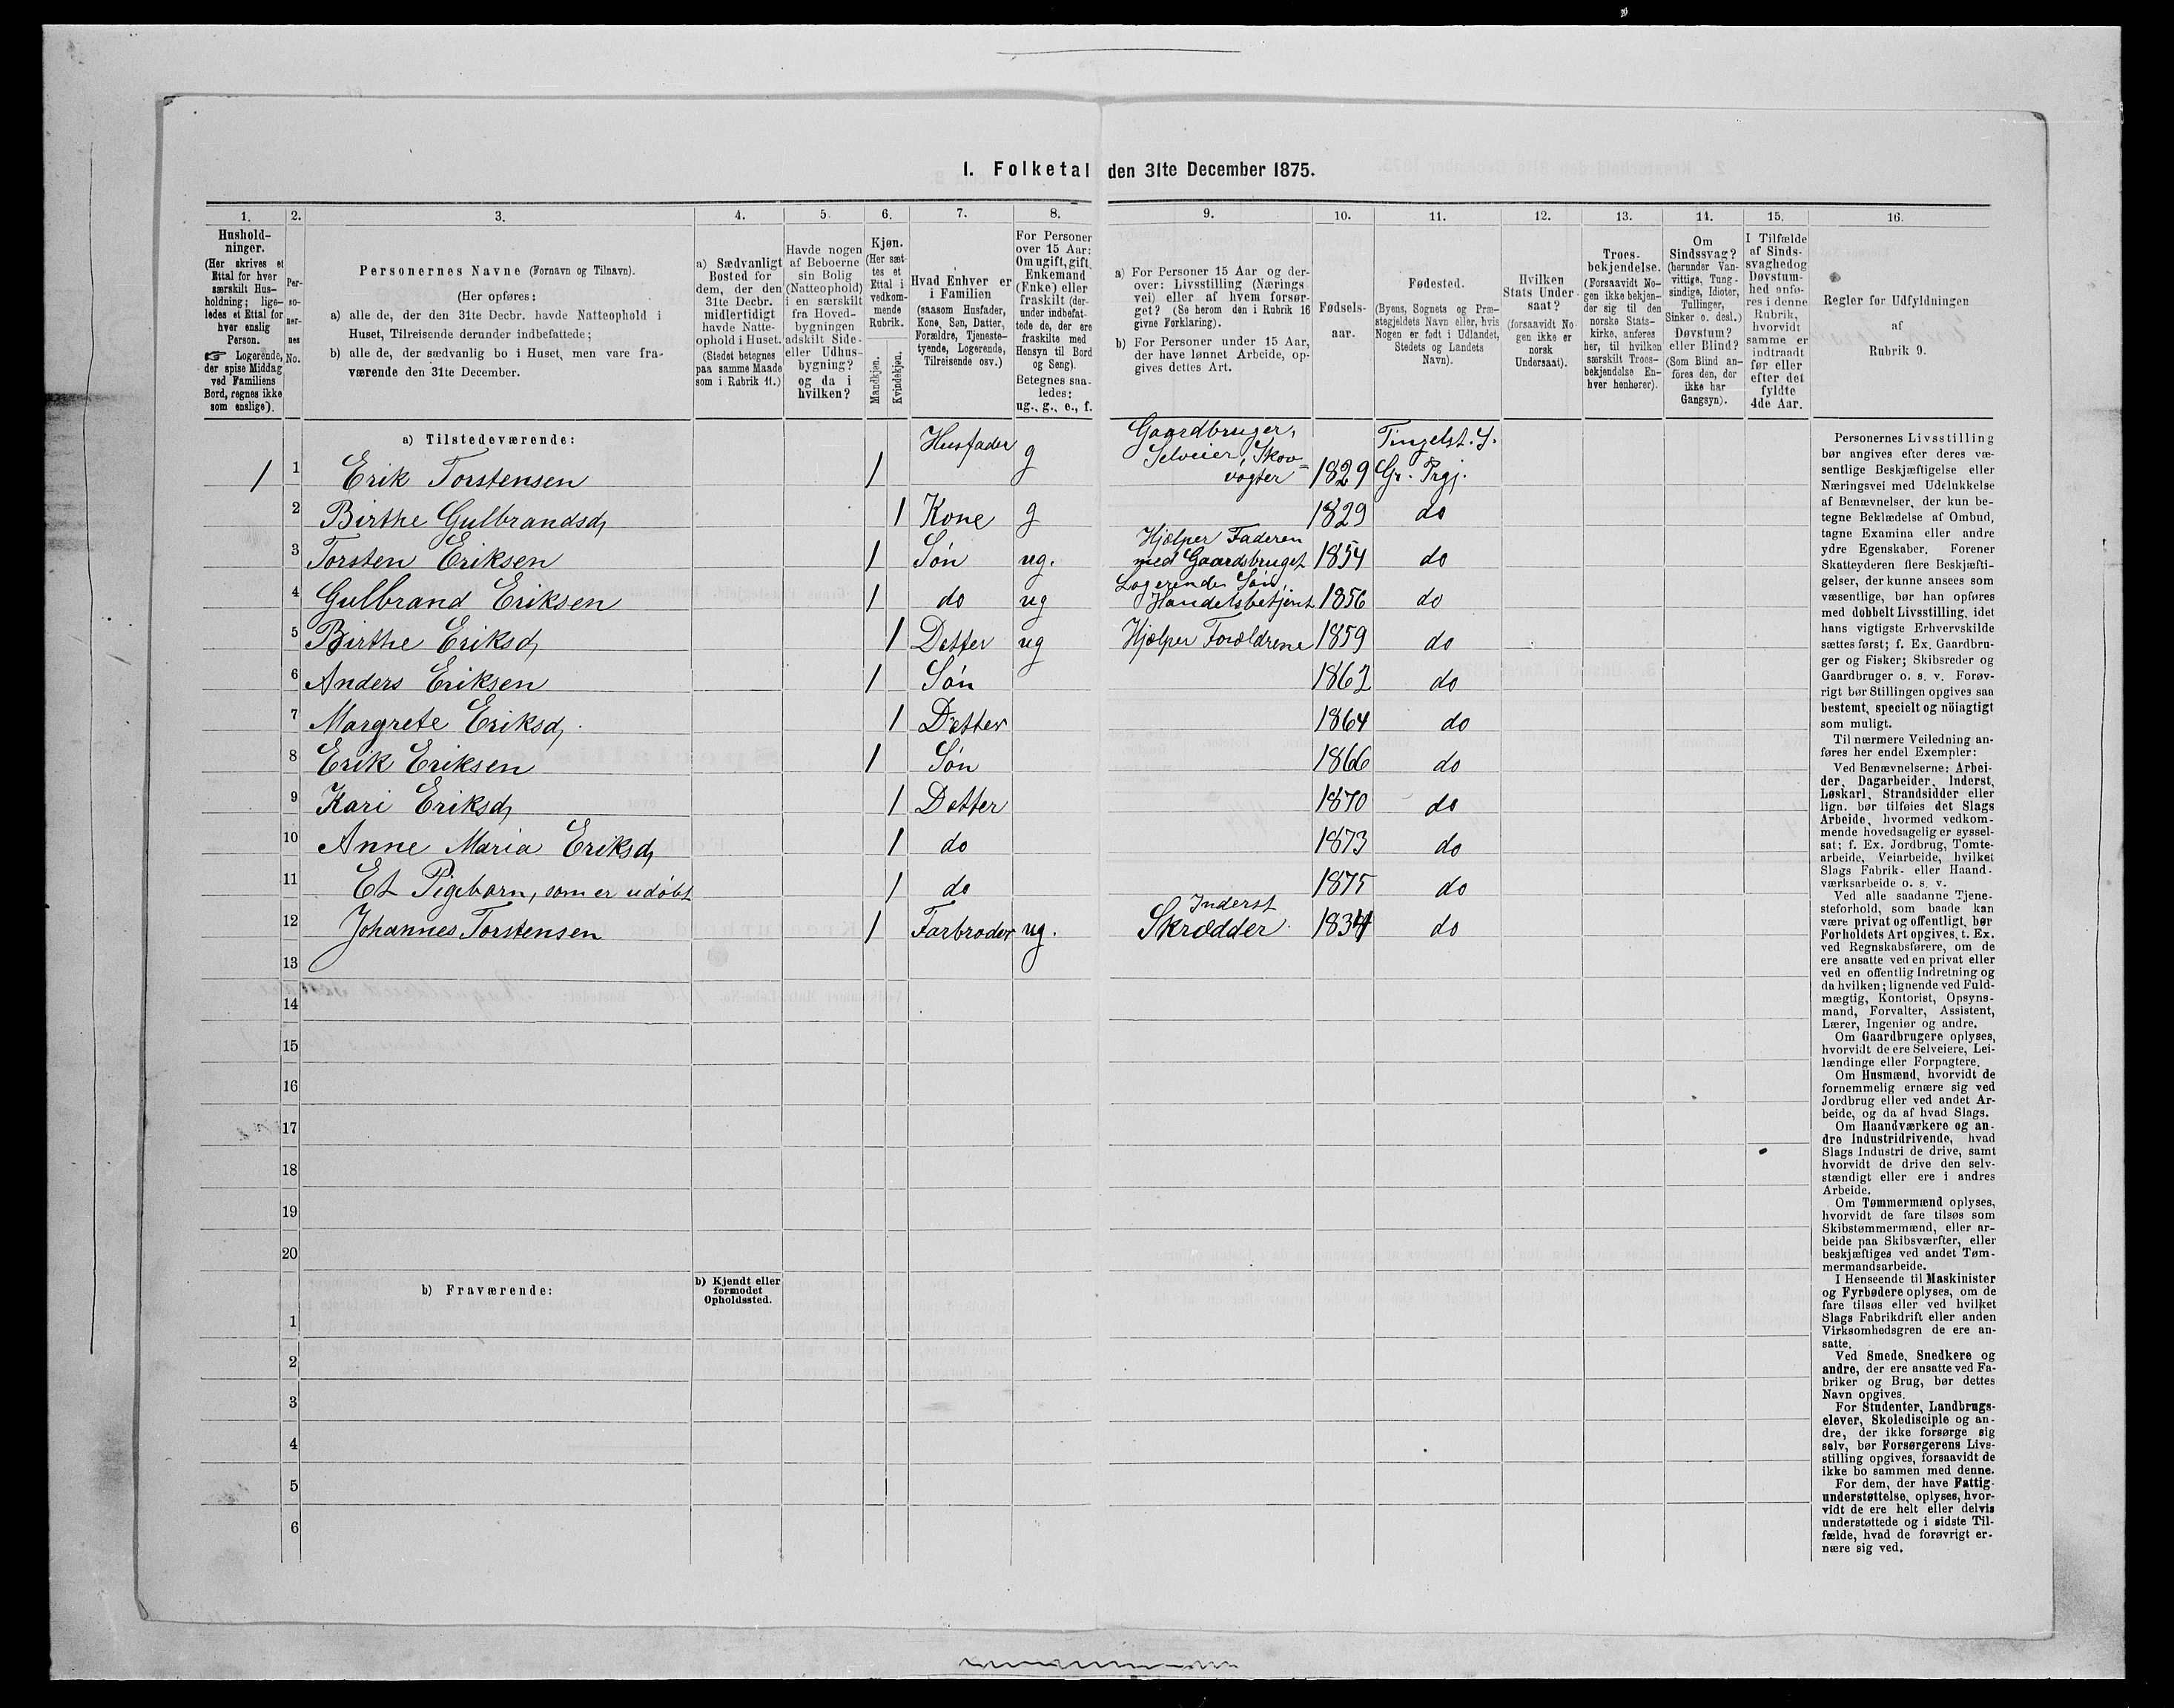 I. Folketal den 31te December 1875.
1. 2. 3. 4. 5. 6. 7. 8. 9. 10. 11. 12. 13. 14. 15. 16.
Hushold-
ninger.
(Her skrives et
Ettal for hver
særskilt Hus-
holdning; lige-
ledes et Ettal for
hver enslig
Person.
☞ Logerende,
der spise Middag
ved Familiens
Bord, regnes ikke
som enslige).
Per-
so-
ner-
nes
No.
Personernes Navne (Fornavn og Tilnavn).
(Her opføres:
a) alle de, der den 31te Decbr. havde Natteophold i
Huset, Tilreisende derunder indbefattede;
b) alle de, der sædvanlig bo i Huset, men vare fra-
værende den 31te December.
a) Sædvanligt
Bosted for
dem, der den
31te Decbr.
midlertidigt
havde Natte-
ophold i Huset.
(Stedet betegnes
paa samme Maade
som i Rubrik 11.)
Havde nogen
af Beboerne
sin Bolig
(Natteophold)
i en særskilt
fra Hoved-
bygningen
adskilt Side-
eller Udhus-
bygning?
og da i
hvilken?
Kjøn.
(Her sæt-
tes et
Ettal i
vedkom-
mende
Rubrik.
Mandkjøn.
Kvindekjøn.
Hvad Enhver er
i Familien
(saasom Husfader,
Kone, Søn, Datter,
Forældre, Tjeneste-
tyende, Logerende,
Tilreisende osv.)
For Personer
over 15 Aar:
Om ugift, gift,
Enkemand
(Enke) eller
fraskilt (der-
under indbefat-
tede de, der ere
fraskilte med
Hensyn til Bord
og Seng).
Betegnes saa-
ledes:
ug., g., e., f.
a) For Personer 15 Aar og der-
over: Livsstilling (Nærings-
vei) eller af hvem forsør-
get? (Se herom den i Rubrik 16
givne Forklaring).
b) For Personer under 15 Aar,
der have lønnet Arbeide, op-
gives dettes Art.
Fødsels-
aar.
Fødested.
(Byens, Sognets og Præ-
stegjeldets Navn eller, hvis
Nogen er født i Udlandet,
Stedets og Landets
Navn).
Hvilken
Stats Under-
saat?
(forsaavidt No-
gen ikke er
norsk
Undersaat).
Troes-
bekjendelse.
(Forsaavidt No-
gen ikke bekjen-
der sig til den
norske Stats-
kirke, anføres
her, til hvilken
særskilt Troes-
bekjendelse En-
hver henhører).
Om
Sindssvag?
(herunder Van-
vittige, Tung-
sindige, Idioter,
Tullinger,
Sinker o. desl.)
Døvstum?
eller Blind?
(Som Blind an-
føres den, der
ikke har
Gangsyn).
I Tilfælde
af Sinds-
svaghed og
Døvstum-
hed anfø-
res i denne
Rubrik,
hvorvidt
samme er
indtraadt
før eller
efter det
fyldte
4de Aar.
Regler for Udfyldningen
af
Rubrik 9.
a) Tilstedeværende:
1 1 Erik Torstensen 1 Husfader g Gaardbruger, Selveier, Skov=vogter 1829 Tingelst. S. Gr. Prgj.
2 Birthe Gulbrandsd, 1 Kone g 1829 do
3 Torsten Eriksen 1 Søn ug. Hjælper Faderen med Gaardsbruget 1854 do
4 Gulbrand Eriksen 1 do ug Logerende Søn, Handelsbetjent 1856 do
5 Birthe Eriksd, 1 Datter ug Hjælper Forældrene 1859 do
6 Anders Eriksen 1 Søn 1862 do
7 Margrete Eriksd, 1 Datter 1864 do
8 Erik Eriksen 1 Søn 1866 do
9 Kari Eriksd, 1 Datter 1870 do
10 Anne Maria Eriksd, 1 do 1873 do
11 Et Pigebarn, som er udøbt 1 do 1875 do
12 Johannes Torstensen 1 Farbroder ug. Inderst Skrædder 1834 do
13
14
15
16
17
18
19
20
b) Fraværende:
b) Kjendt eller
formodet
Opholdssted.
1
2
3
4
5
6
Personernes Livsstilling
bør angives efter deres væ-
sentlige Beskjæftigelse eller
Næringsvei med Udelukkelse
af Benævnelser, der kun be-
tegne Beklædelse af Ombud,
tagne Examina eller andre
ydre Egenskaber. Forener
Skatteyderen flere Beskjæfti-
gelser, der kunne ansees som
væsentlige, bør han opføres
med dobbelt Livsstilling, idet
hans vigtigste Erhvervskilde
sættes først; f. Ex. Gaardbru-
ger og Fisker; Skibsreder og
Gaardbruger o. s. v. Forøv-
rigt bør Stillingen opgives saa
bestemt, specielt og nöiagtigt
som muligt.
Til nærmere Veiledning an-
føres her endel Exempler:
Ved Benævnelserne: Arbei-
der, Dagarbeider, Inderst,
Løskarl, Strandsidder eller
lign. bør tilføies det Slags
Arbeide, hvormed vedkom-
mende hovedsagelig er syssel-
sat; f. Ex. Jordbrug, Tomte-
arbeide, Veiarbeide, hvilket
Slags Fabrik- eller Haand-
værksarbeide o. s. v.
Ved alle saadanne Tjene-
steforhold, som baade kan
være privat og offentligt, bør
Forholdets Art opgives, t. Ex.
ved Regnskabsførere, om de
ere ansatte ved en privat eller
ved en offentlig Indretning og
da hvilken; lignende ved Fuld-
mægtig, Kontorist, Opsyns-
mand, Forvalter, Assistent,
Lærer, Ingeniør og andre.
Om Gaardbrugere oplyses,
hvorvidt de ere Selveiere, Lei-
lændinge eller Forpagtere.
Om Husmænd, hvorvidt de
fornemmelig ernære sig ved
Jordbrug eller ved andet Ar-
beide, og da af hvad Slags.
Om Haandværkere og an-
dre Industridrivende, hvad
Slags Industri de drive, samt
hvorvidt de drive den selv-
stændigt eller ere i andres
Arbeide.
Om Tømmermænd oplyses,
hvorvidt de fare tilsøs som
Skibstømmermænd, eller ar-
beide paa Skibsværfter, eller
beskjæftiges ved andet Tøm-
mermandsarbeide.
I Henseende til Maskinister
og Fyrbødere oplyses, om de
fare tilsøs eller ved hvilket
Slags Fabrikdrift eller anden
Virksomhedsgren de ere an-
satte.
Ved Smede, Snedkere og
andre, der ere ansatte ved Fa-
briker og Brug, bør dettes
Navn opgives.
For Studenter, Landbrugs-
elever, Skoledisciple og an-
dre, der ikke forsørge sig
selv, bør Forsørgerens Livs-
stilling opgives, forsaavidt de
ikke bo sammen med denne.
For dem, der have Fattig-
understøttelse, oplyses, hvor-
vidt de ere helt eller delvis
understøttede og i sidste Til-
fælde, hvad de forøvrigt er-
nære sig ved.